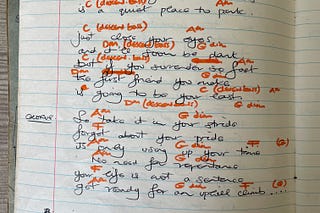 C (descend bass) Am
is a quiet place to park
C (descend bass) Am
just close your eyes
and it'll soon be dark
Dm (descend bass) G dim
but if you surrender so fast
Dm G dim
the first friend you make
C (descend bass) Am
is going to be your last
Dm (descend bass) G dim
CHORUS So take it in your stride
Am F
forget about your pride
Am G dim F (2)
is only using up your time
Am G dim
No need for repentance
Am F
your life is not a sentence
Am G dim F (2)
get ready for an uphill climb....
B